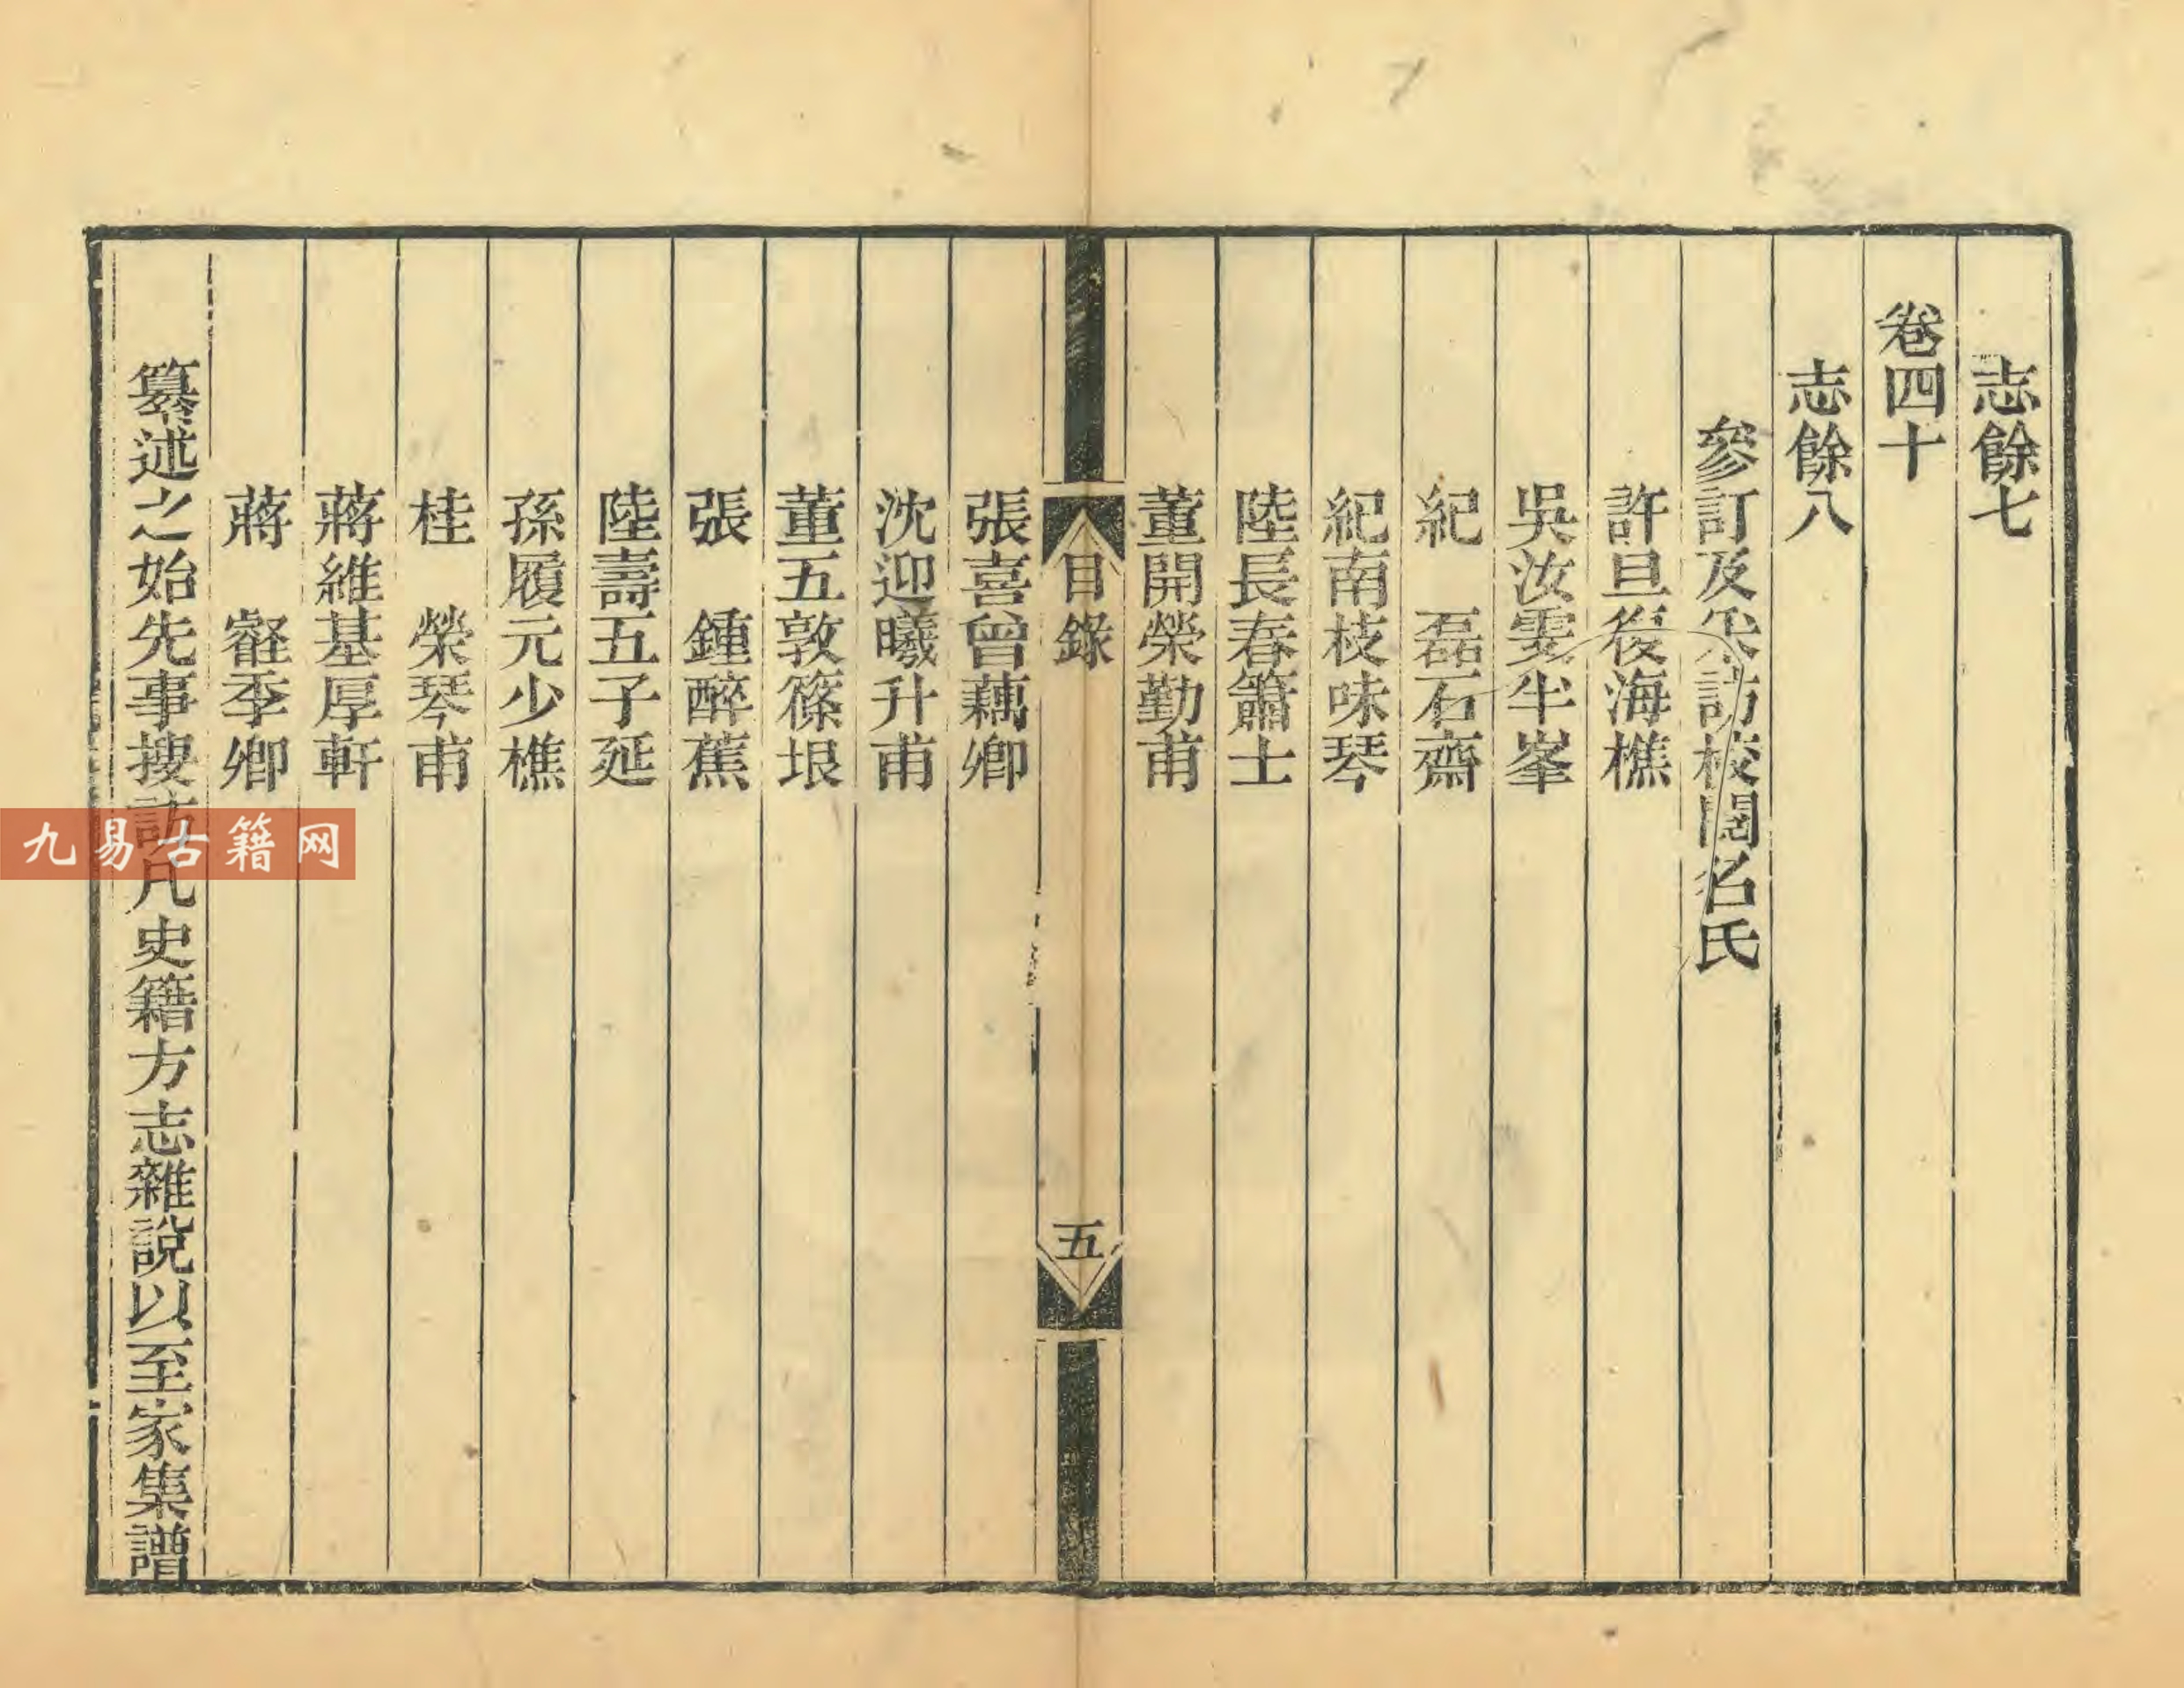 志餘七
卷四十
志餘八
參訂及采訪校閱名氏
許旦復海樵
吳汝雯半峯
紀　磊石齋
紀南枝味琴
陸長春簫士
董開榮勤甫
目錄
五
張喜曾藕卿
沈迎曦升甫
董五敦篠垠
張　鍾醉蕉
陸壽五子延
孫履元少樵
桂　榮琴甫
蔣維基厚軒
蔣　叡季卿
纂述之始先事搜訪凡史籍方志雜說以至家集譜
九易古籍网